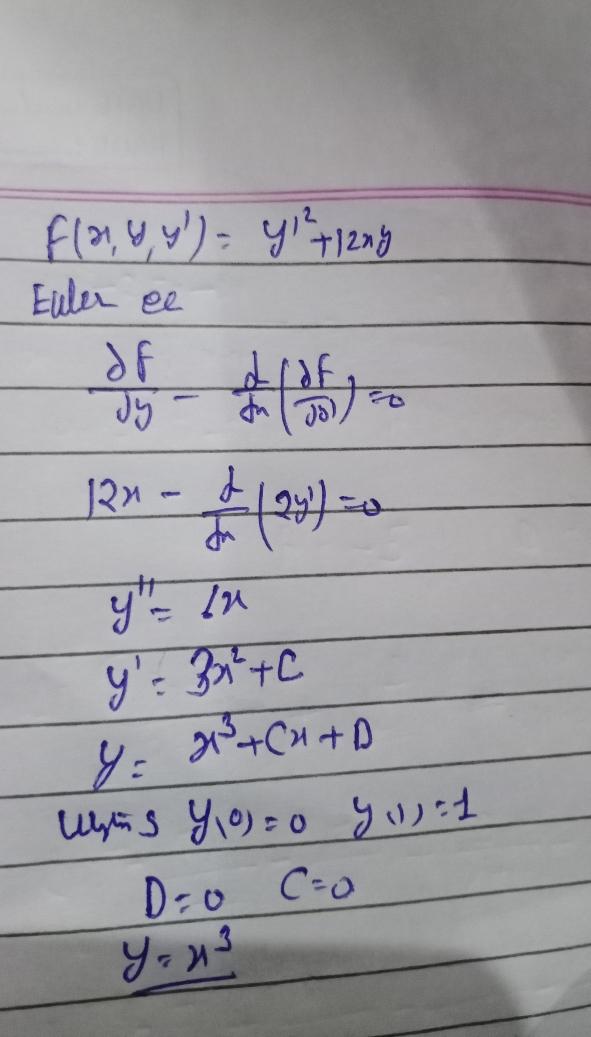 F(x, y, y') = y'² + 12xy
Euler ee
∂F/∂y - d/dx (∂F/∂y') = 0
12x - d/dx (2y') = 0
y'' = 6x
y' = 3x² + C
y = x³ + Cx + D
y(0) = 0 y(1) = 1
D = 0 C = 0
y = x³